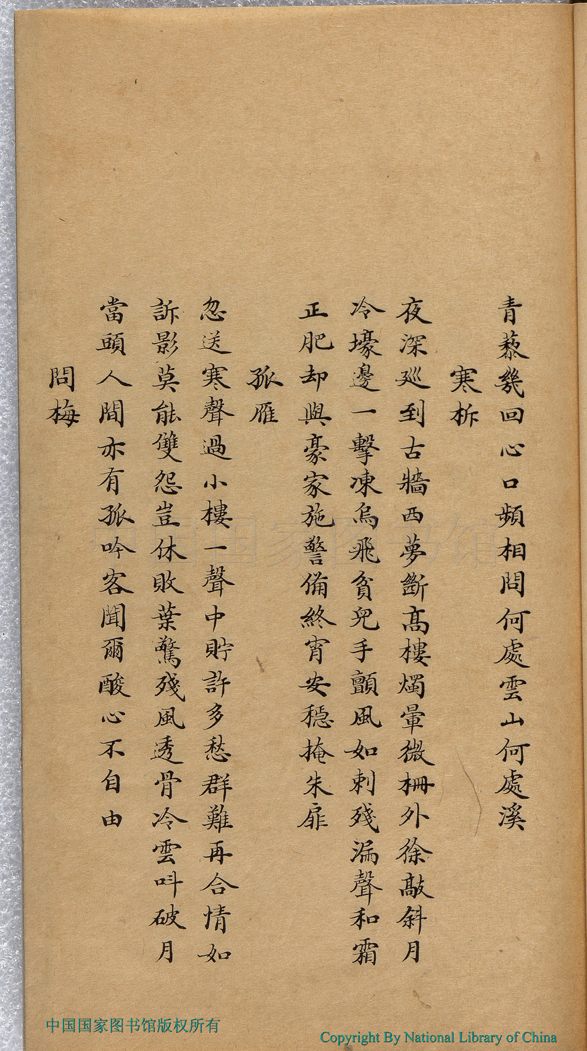 青藜幾回心口頻相問何處雲山何處溪
寒柝
夜深廵到古牆西夢斷髙樓燭暈微柵外徐敲斜月
冷壕邊一擊凍烏飛貧兒手顫風如刺殘漏聲和霜
正肥却與豪家施警備終宵安穩掩朱扉
孤雁
忽送寒聲過小樓一聲中貯許多愁群難再合情如
訴影莫能雙怨豈休敗葉驚殘風透骨冷雲呌破月
當頭人間亦有孤吟客聞爾酸心不自由
問梅
中国国家图书馆
中国国家图书馆版权所有
Copyright By National Library of China